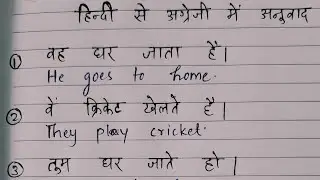 हिन्दी से अंग्रेजी में अनुवाद
① वह घर जाता है।
He goes to home.
② वें क्रिकेट खेलते है।
They play cricket.
③ तुम घर जाते हो।